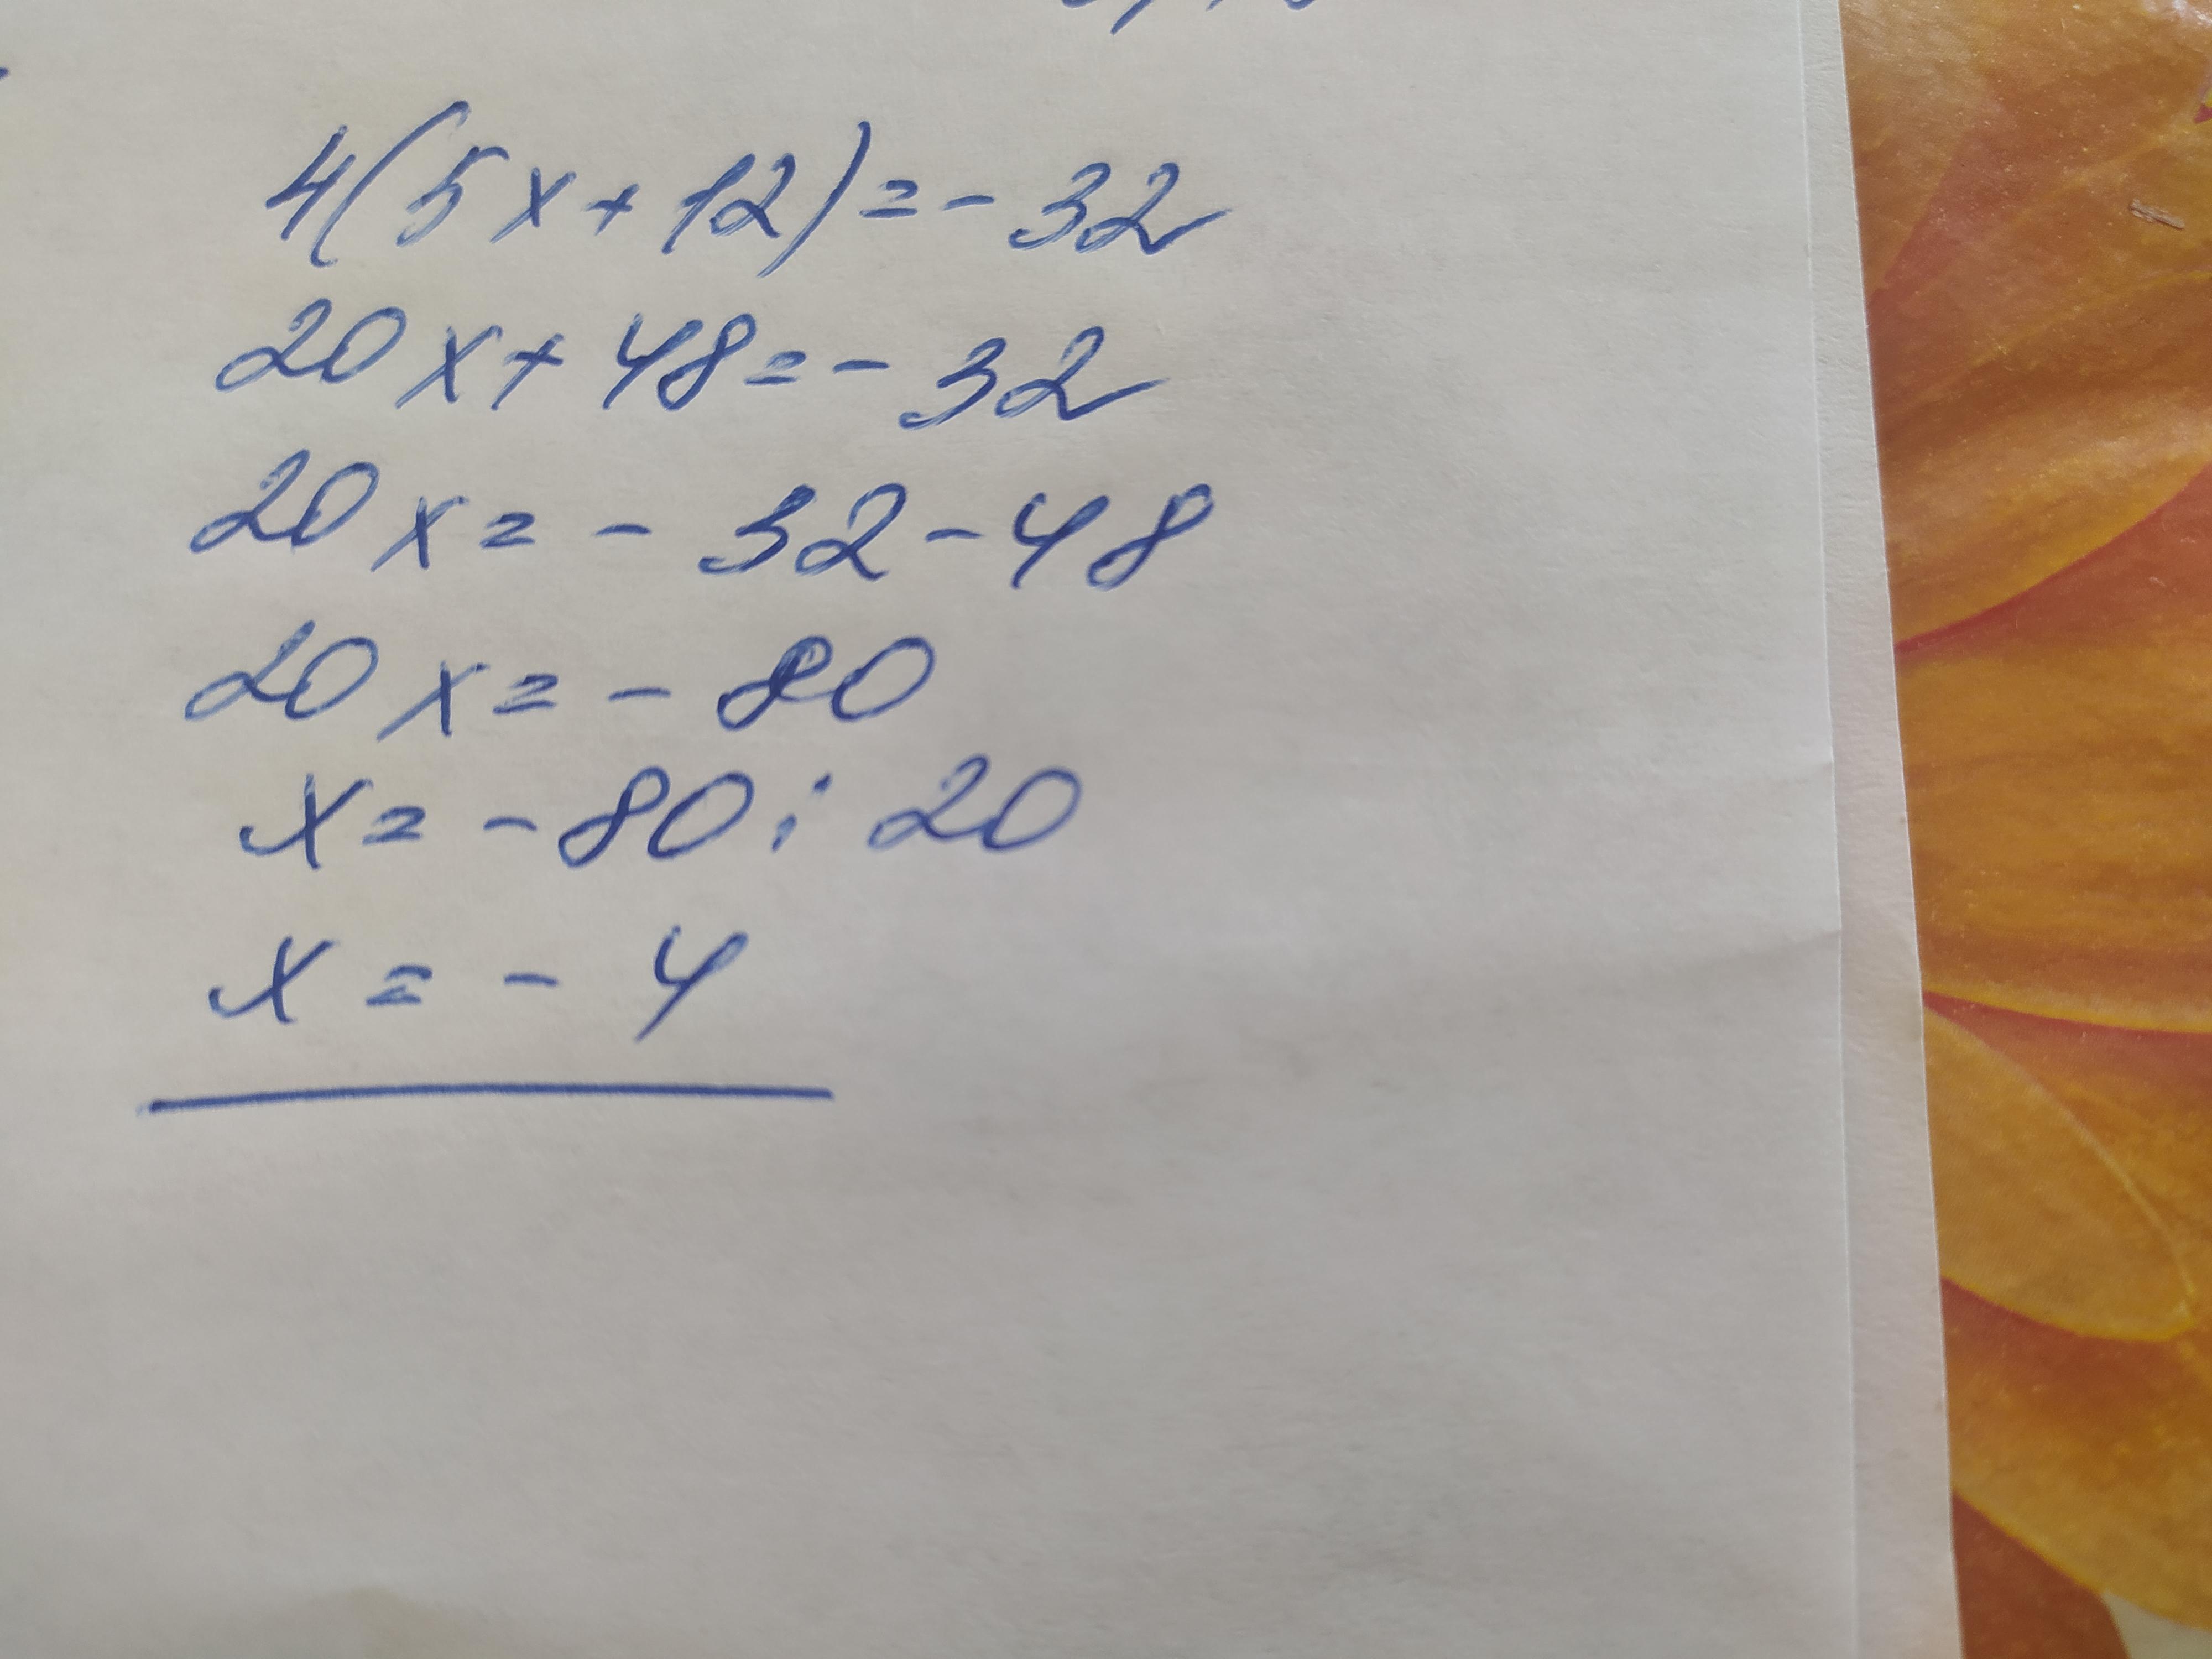 4(5x+12)=-32
20x+48=-32
20x=-32-48
20x=-80
x=-80:20
x=-4